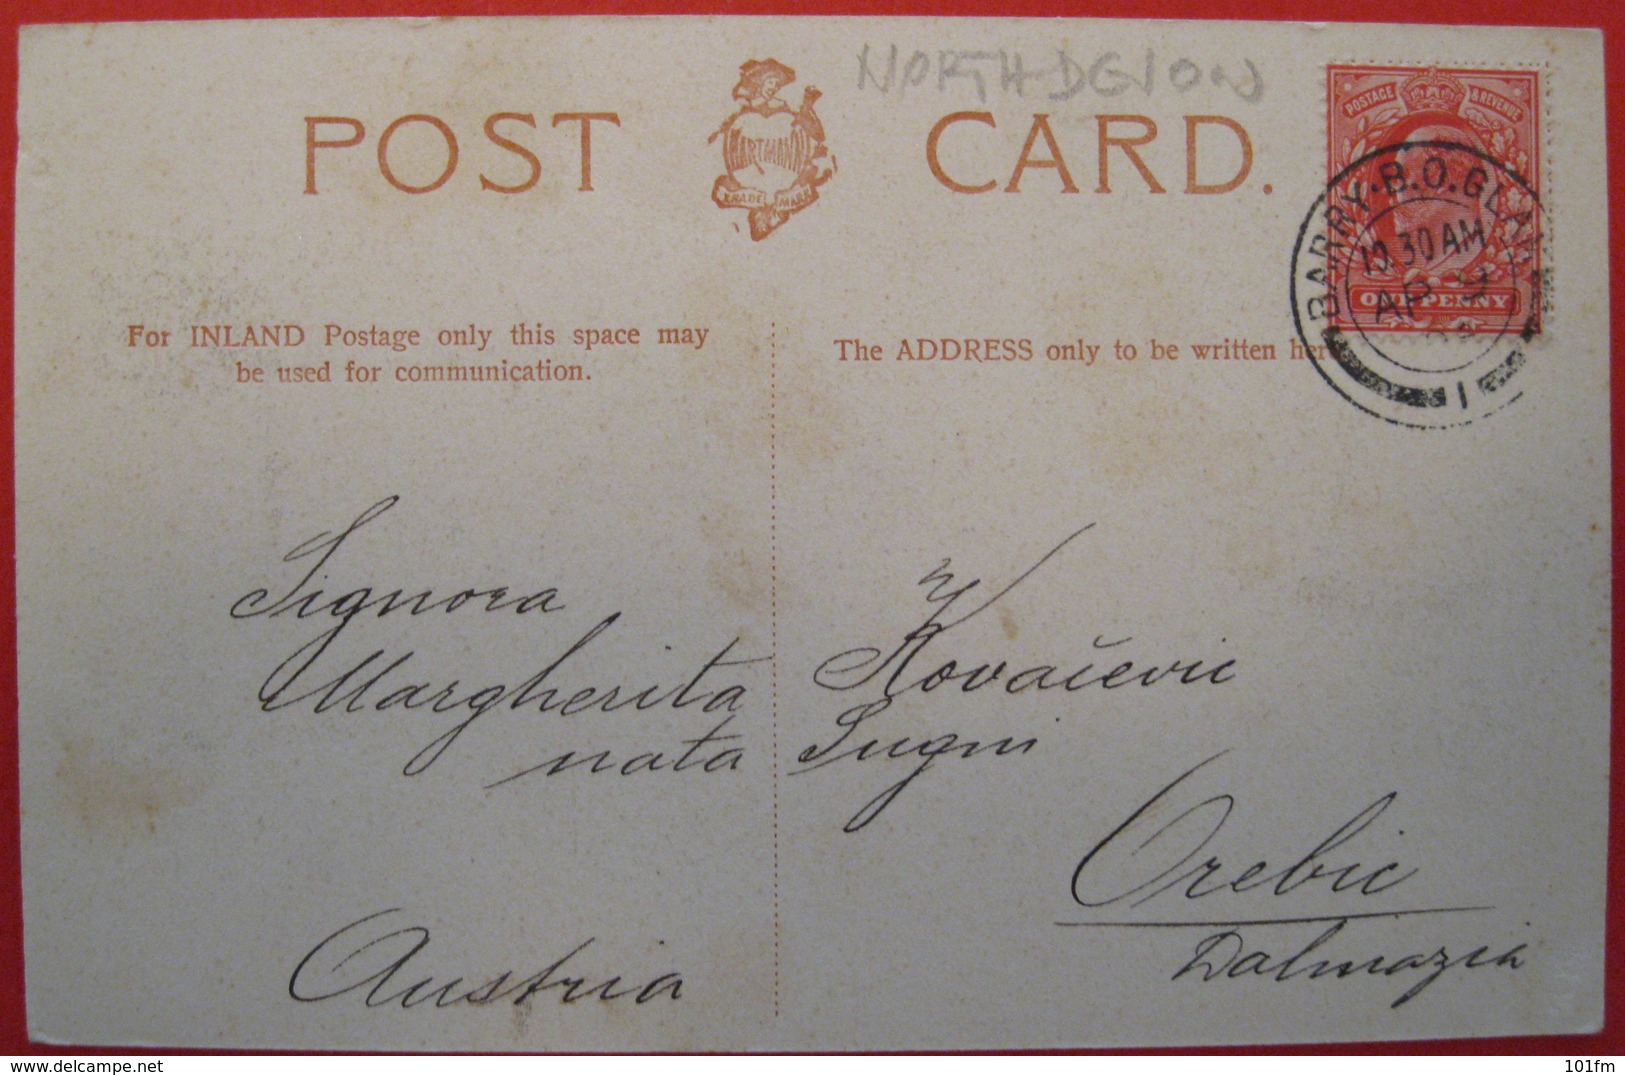 NORTH DEVON
POST CARD.
HARTMANN
TRADE MARK
POSTAGE & REVENUE
ONE PENNY
BARRY.B.O.GLAM
10.30AM
AP 9
1
For INLAND Postage only this space may
be used for communication.
The ADDRESS only to be written her
Signora
Margherita Kovačevic
nata Sugni
Orebic
Dalmazia
Austria
101fm